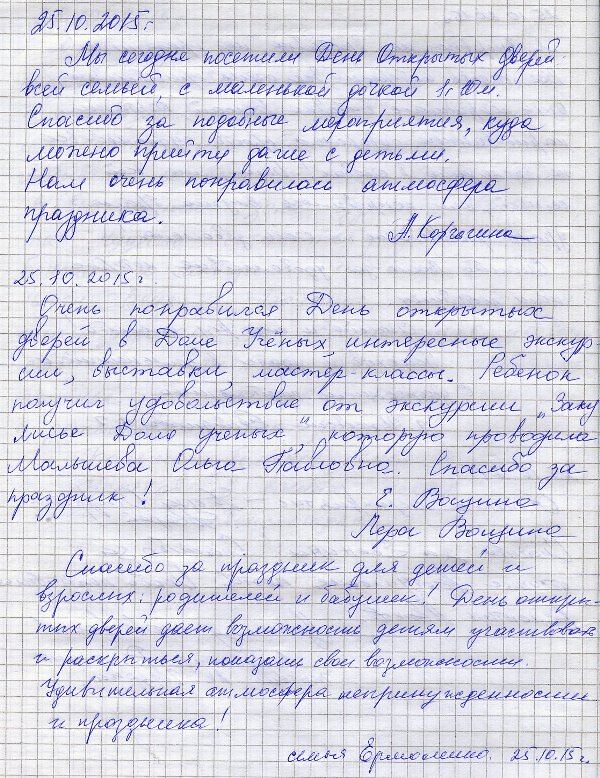 25.10.2015г.
Мы сегодня посетили День Открытых дверей
всей семьей, с маленькой дочкой 1г 10м.
Спасибо за подобные мероприятия, куда
можено прийти даже с детьми.
Нам очень понравилась атмосфера
праздника.
А. Коргасина
25.10.2015г.
Очень понравился День открытых
дверей в Доме Учёных интересные экскур
сии, выставки, мастер-классы. Ребенок
получил удовольствие от экскурсии „Заку
лисье Дома ученых", которую проводила
Малышева Ольга Павловна. Спасибо за
праздник!
Е. Ващина
Лера Ващина
Спасибо за праздник для детей и
взрослых: родителей и бабушек! День откры-
тых дверей дает возможность детям участвовать
и раскрыться, показать свои возможности.
Удивительная атмосфера непринужденности
и праздника!
семья Ермоленко. 25.10.15г.